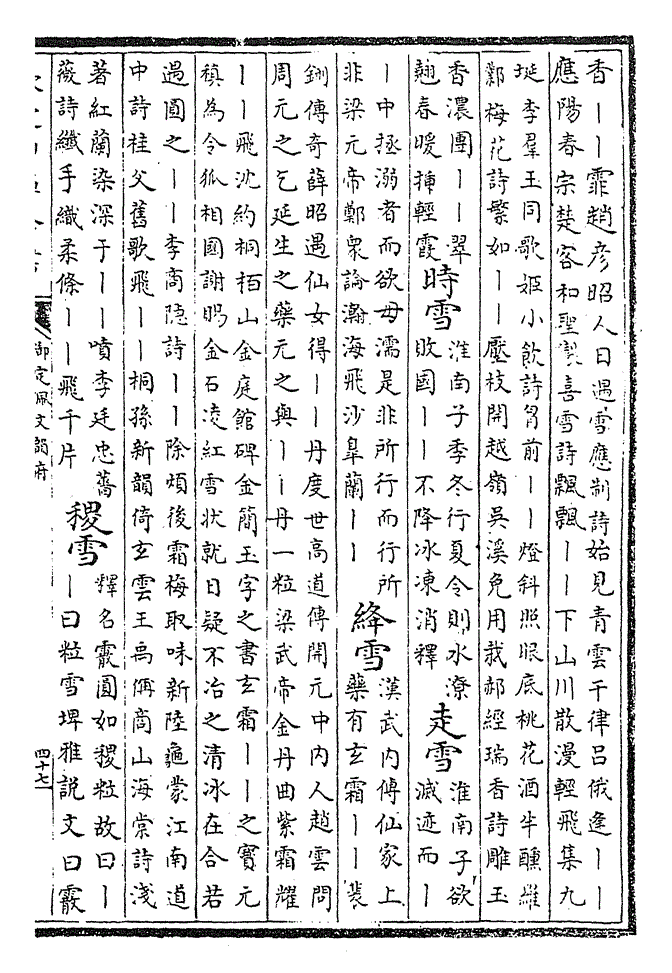 香丨丨霏趙彦昭人日遇雪應制詩始見青雲干律呂俄逢丨丨
應陽春宗楚客和聖製喜雪詩飄飄丨丨下山川散漫輕飛集九
埏李羣玉同歌姬小飲詩胷前丨丨燈斜照眼底桃花酒半醺維
鄭梅花詩繁如丨丨壓枝開越嶺吳溪免用栽郝經瑞香詩雕玉
香濃團丨丨翠
翹春暖揷輕霞
時雪
淮南子季冬行夏令則水潦
敗國丨丨不降冰凍消釋
走雪
淮南子欲
滅迹而丨
丨中拯溺者而欲毋濡是非所行而行所
非梁元帝鄭衆論瀚海飛沙臯蘭丨丨
絳雪
漢武内傳仙家上
藥有玄霜丨丨裴
鉶傳奇薛昭遇仙女得丨丨丹度世高道傳開元中内人趙雲問
周元之乞延生之藥元之與丨丨丹一粒梁武帝金丹曲紫霜耀
丨丨飛沈約桐栢山金庭館碑金簡玉字之書玄霜丨丨之寳元
稹為令狐相國謝賜金石凌紅雪狀就日疑不冶之清冰在合若
遇圓之丨丨李商隐詩丨丨除煩後霜梅取味新陸龜蒙江南道
中詩桂父舊歌飛丨丨桐孫新韻倚玄雲王禹偁商山海棠詩淺
著紅蘭染深于丨丨噴李廷忠薔
薇詩纖手織柔條丨丨飛千片
稷雪
釋名霰圓如稷粒故曰丨
丨曰粒雪埤雅説文曰霰
御定佩文韻府
四十七